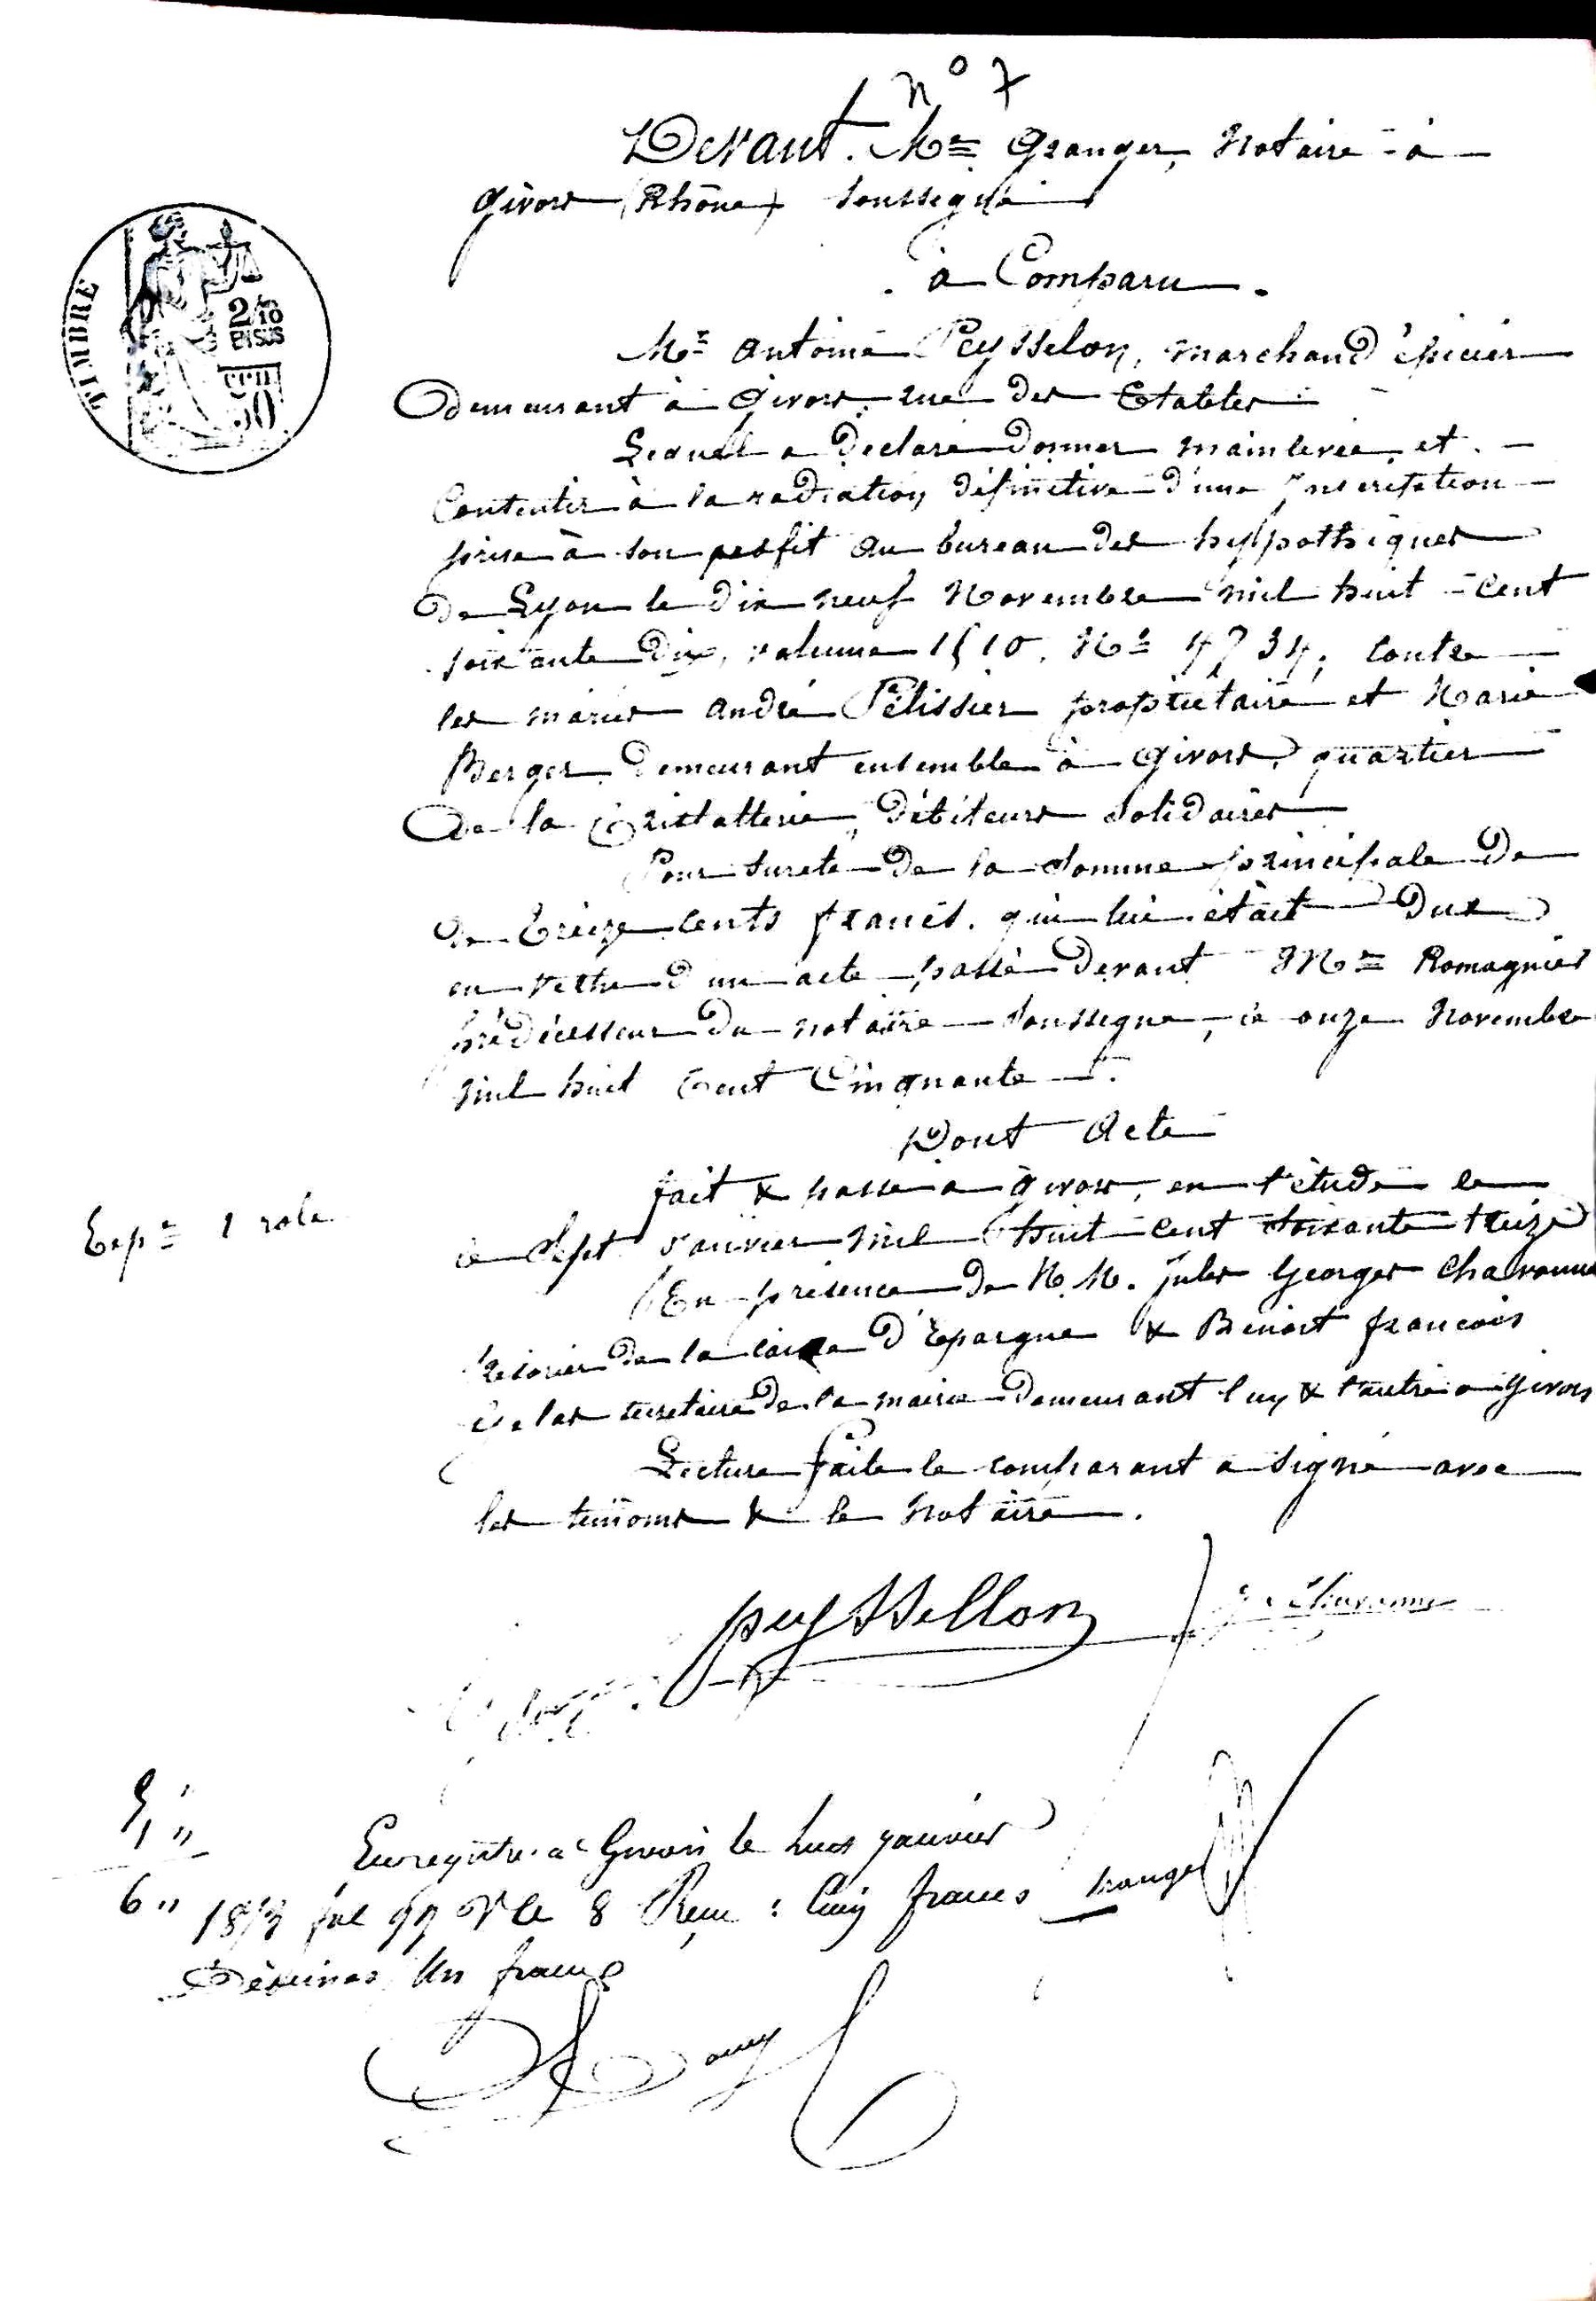 n° 7
Devant Me Granger, Notaire à
Givors (Rhône) soussigné
a Comparu.
TIMBRE
2/10
EN SUS
50
Mr Antoine Peysselon, marchand épicier
demeurant à Givors, rue des Etables
Lequel a déclaré donner mainlevée et
Consentir à la radiation définitive d'une Inscription
prise à son profit au bureau des hyppothèques
de Lyon le dix neuf Novembre mil huit cent
soixante dix, volume 1510, No 4734, contre
les mariés André Pélissier propriétaire et Marie
Berger demeurant ensemble à Givors, quartier
de la Cristallerie, débiteurs solidaires
Pour sureté de la somme principale de
de Treize cents francs qui lui était due
en vertu d'un acte passé devant Me Romagnier
prédécesseur du notaire soussigné, le onze Novembre
mil huit cent Cinquante
Dont Acte
fait & passé a Givors, en l'étude le
Expn 1 role
le Sept Janvier mil huit cent soixante treize
En présence de M. M. Jules Georges Chavanne
trésorier de la caisse d'Epargne & Benoit francois
secretaire de la mairie demeurant l'un & l'autre a Givors
Lecture faite le comparant a signé avec
les temoins & le Notaire.
peyssellon
J Chavanne
5 "
1 "
Enregistré à Givors le huit janvier
6 " 1873 fol 97 Vo Ce 8 Reçu : Cinq francs
Granger
Décimes Un franc